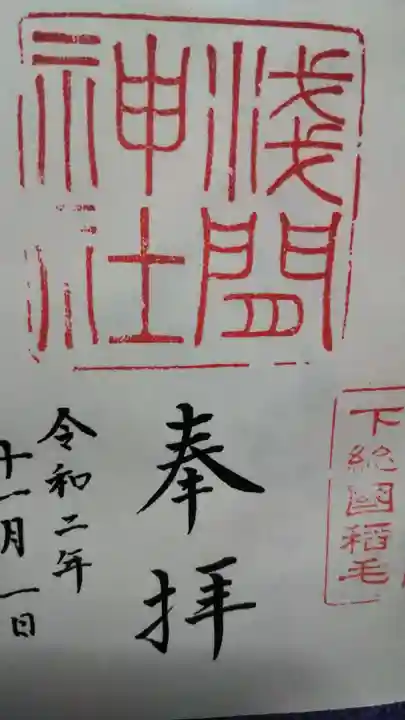 淺間
神社
下総國稲毛
奉拝
令和二年
十一月一日